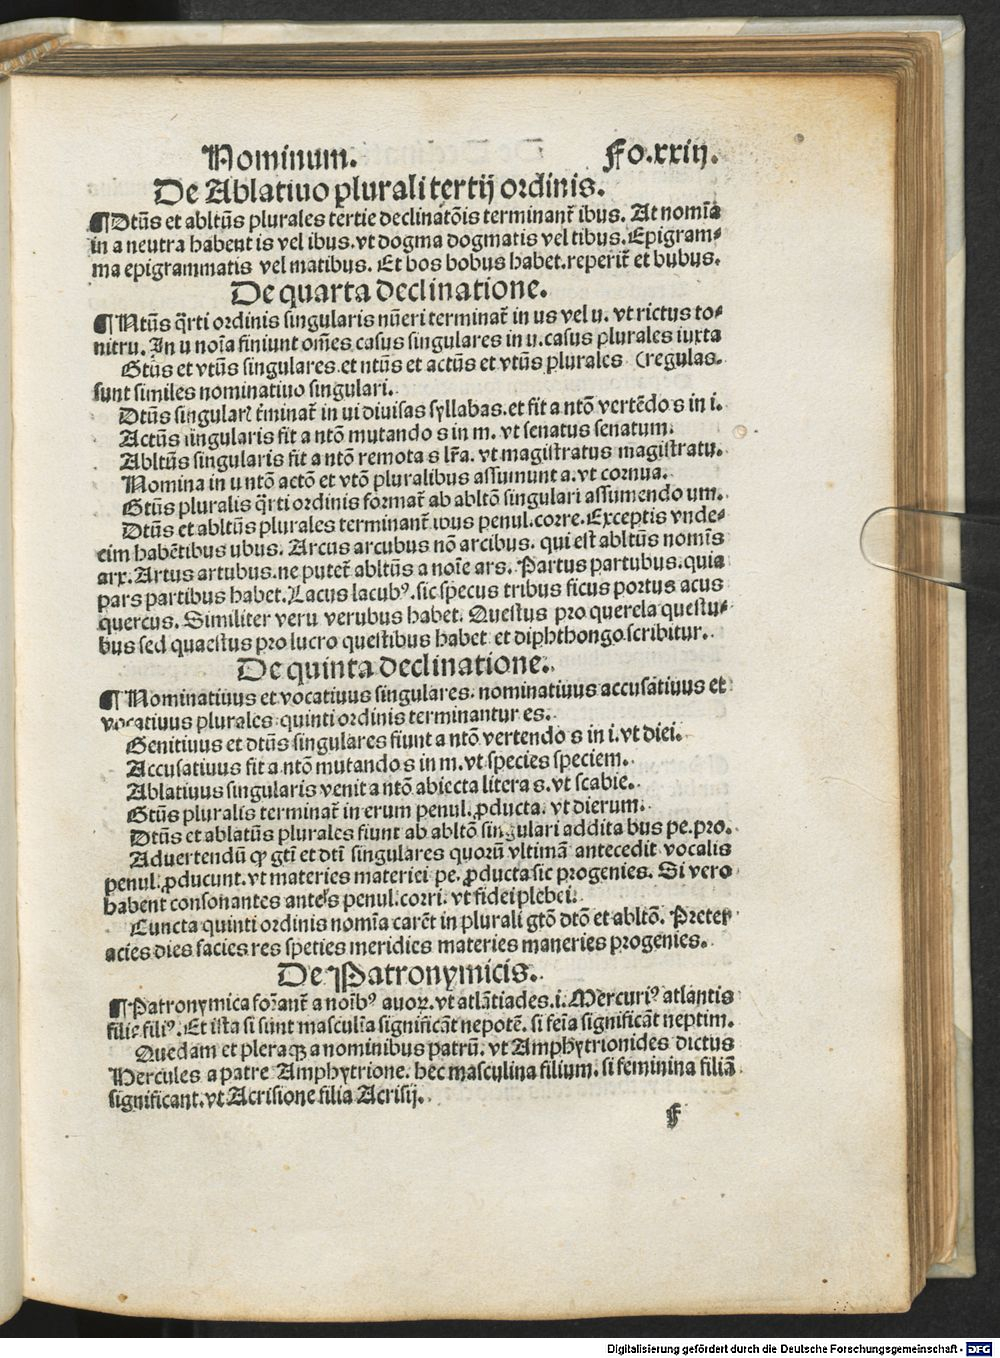 Nominum. Fo.xxiij.
De Ablatiuo plurali tertij ordinis.
¶Dtũs et abltũs plurales tertie declinatõis terminant᷑ ibus. At nomĩa
in a neutra habent is vel ibus. vt dogma dogmatis vel tibus. Epigram-
ma epigrammatis vel matibus. Et bos bobus habet. reperit᷑ et bubus.
De quarta declinatione.
¶Ntũs q̃rti ordinis singularis nũeri terminat᷑ in us vel u. vt rictus to-
nitru. In u noĩa finiunt om̃es casus singulares in u. casus plurales iuxta
Gtũs et vtũs singulares. et ntũs et actũs et vtũs plurales (regulas.
sunt similes nominatiuo singulari.
Dtũs singularꝭ t̃minat᷑ in ui diuisas syllabas. et fit a ntõ vertẽdo s in i.
Actũs singularis fit a ntõ mutando s in m. vt senatus senatum.
Abltũs singularis fit a ntõ remota s lr̃a. vt magistratus magistratu.
Nomina in u ntõ actõ et vtõ pluralibus assumunt a. vt cornua.
Gtũs pluralis q̃rti ordinis format᷑ ab abltõ singulari assumendo um.
Dtũs et abltũs plurales terminant᷑ ibus penul. corre. Exceptis vnde-
cim habẽtibus ubus. Arcus arcubus nõ arcibus. qui est abltũs nomĩs
arx. Artus artubus. ne putet᷑ abltũs a noĩe ars. Partus partubus. quia
pars partibus habet. Lacus lacubꝰ. sic specus tribus ficus portus acus
quercus. Similiter veru verubus habet. Questus pro querela questu-
bus sed quaestus pro lucro questibus habet et diphthongo scribitur.
De quinta declinatione.
¶Nominatiuus et vocatiuus singulares. nominatiuus accusatiuus et
vocatiuus plurales quinti ordinis terminantur es.
Genitiuus et dtũs singulares fiunt a ntõ vertendo s in i. vt diei.
Accusatiuus fit a ntõ mutando s in m. vt species speciem.
Ablatiuus singularis venit a ntõ abiecta litera s. vt scabie.
Gtũs pluralis terminat᷑ in erum penul. ꝓducta. vt dierum.
Dtũs et ablatũs plurales fiunt ab abltõ singulari addita bus pe. pro.
Aduertendũ ꝙ gtĩ et dtĩ singulares quorũ vltimã antecedit vocalis
penul. ꝓducunt. vt materies materiei pe. ꝓducta sic progenies. Si vero
habent consonantes antels penul. corri. vt fidei plebei.
Cuncta quinti ordinis nomĩa carẽt in plurali gtõ dtõ et abltõ. Preter
acies dies facies res speties meridies materies maneries progenies.
De Patronymicis.
¶Patronymica for̃ant᷑ a noĩbꝰ auoꝝ. vt atlãtiades. i. Mercuriꝰ atlantis
filie filiꝰ. Et ista si sunt masculĩa significãt nepotẽ. si feĩa significãt neptim.
Quedam et pleraqꝫ a nominibus patrũ. vt Amphytrionides dictus
Hercules a patre Amphytrione. hec masculina filium. si feminina filiã
significant. vt Acrisione filia Acrisij.
F
Digitalisierung gefördert durch die Deutsche Forschungsgemeinschaft - DFG